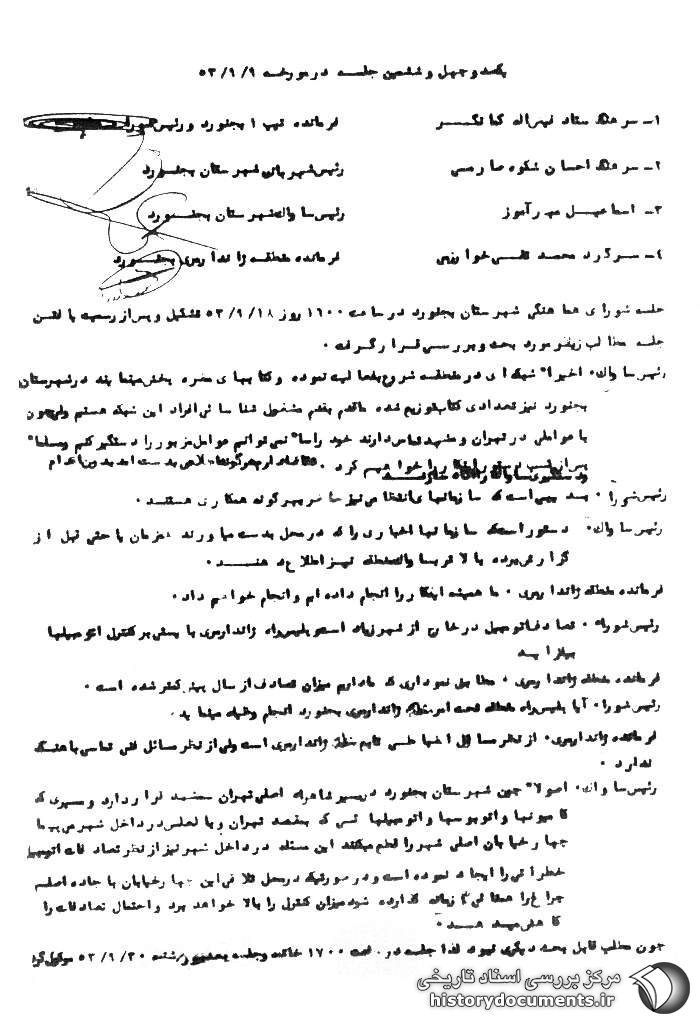 یکصد و چهل و ششمین جلسه در مورخه ۵۳/۹/۹
۱- سرهنگ ستاد فرمانده تیپ ۱ بجنورد و رئیس شورا
۲- سرهنگ احسان شکوه صارمی رئیس شهربانی شهرستان بجنورد
۳- اسماعیل مهرآموز رئیس ساواک شهرستان بجنورد
۴- سرگرد محمد تقی خوارزمی فرمانده منطقه ژاندارمری بجنورد
جلسه شورای هماهنگی شهرستان بجنورد در ساعت ۱۶۰۰ روز ۵۳/۹/۱۸ تشکیل و پس از رسمیت یافتن
جلسه مطالب زیر مورد بحث و بررسی قرار گرفت ۰
رئیس ساواک ۰ اخیرا" شبکه ای در منطقه شروع بفعالیت نموده و کتابهای مضره پخش مینمایند در شهرستان
بجنورد نیز تعدادی کتاب توزیع شده ما قدم بقدم مشغول شناسائی افراد این شبکه هستیم ولی چون
با عواملی در تهران و مشهد تماس دارند خود راسا" نمی توانیم عوامل مزبور را دستگیر کنیم و مسلما"
پس از کسب دستور اینکار را خواهیم کرد ۰
رئیس شورا ۰ بدیهی است که سازمانهای انتظامی نیز حاضر بهرگونه همکاری هستند ۰
رئیس ساواک ۰ دستور است که سازمانها اخباری را که در محل بدست میاورند همزمان یا حتی قبل از
گزارش برده بالاتر بساواک منطقه نیز اطلاع دهند ۰
فرمانده منطقه ژاندارمری ۰ ما همیشه اینکار را انجام داده ایم و انجام خواهیم داد ۰
رئیس شورا ۰ تصادفات اتومبیل در خارج از شهر زیاد است و پلیس راه ژاندارمری بایستی بر کنترل اتومبیلها
بیفزاید
فرمانده منطقه ژاندارمری ۰ مطابق نموداری که ما داریم میزان تصادف از سال پیش کمتر شده است ۰
رئیس شورا ۰ آیا پلیس راه منطقه تحت امر منطقه ژاندارمری بجنورد انجام وظیفه مینماید ۰
فرمانده ژاندارمری ۰ از نظر مسائل انضباطی تابع منطقه ژاندارمری است ولی از نظر مسائل فنی تماسی با هنگ
ندارد ۰
رئیس ساواک ۰ اصولا" چون شهرستان بجنورد در مسیر شاهراه اصلی تهران مشهد قرار دارد و مسیری که
کامیونها و اتوبوسها و اتومبیلها ئی که بمقصد تهران و یا بالعکس در داخل شهر می پیمایند
چهار خیابان اصلی شهر را قطع میکنند این مسئله در داخل شهر نیز از نظر تصادفات اتومبیل
خطراتی را ایجاد نموده است و در صورتیکه در محل تلاقی این چهار خیابان با جاده اصلی
چراغ راهنمائی گذارده شود میزان کنترل را بالا خواهد برد و احتمال تصادفات را
کاهش میدهد ۰
چون مطلب قابل بحث دیگری نبود لذا جلسه در ساعت ۱۷۰۰ خاتمه و جلسه بعدی بروز شنبه ۵۳/۹/۳۰ موکول گردید
مرکز بررسی اسناد تاریخی
historydocuments.ir